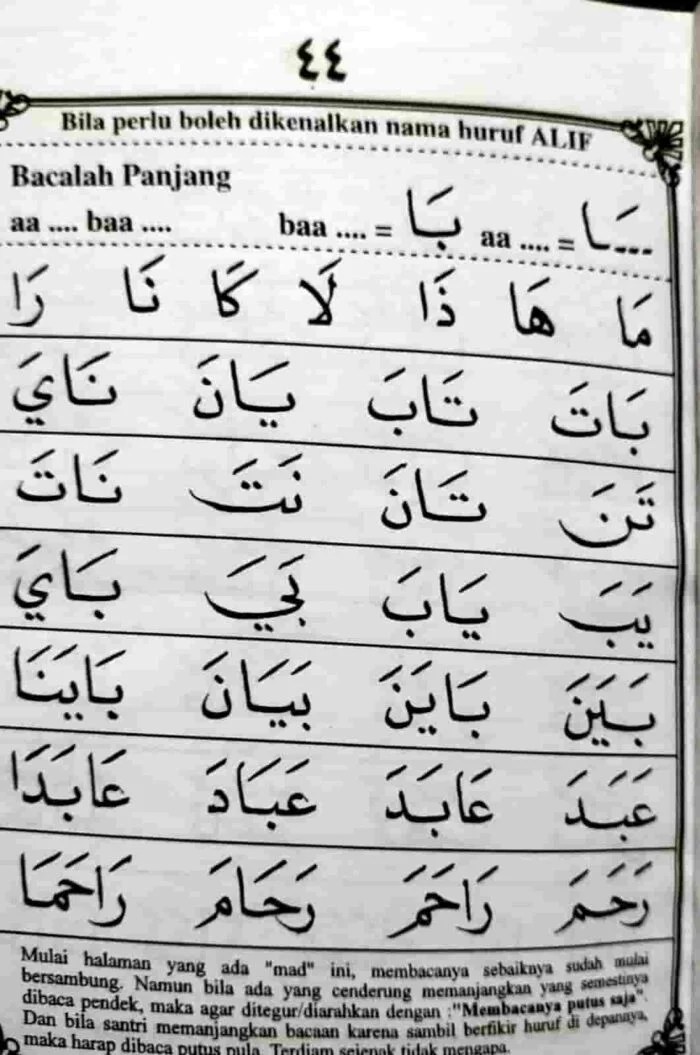 ٤٤
Bila perlu boleh dikenalkan nama huruf ALIF
Bacalah Panjang
aa .... baa .... baa .... = بَا aa .... = ـَا
مَا هَا ذَا لَا كَا نَا رَا
بَاتَ تَابَ يَانَ نَايَ
تَنَ تَانَ نَتَ نَاتَ
يَبَ يَابَ بَيَ بَايَ
بَيَنَ بَايَنَ بَيَانَ بَايَنَا
عَبَدَ عَابَدَ عَبَادَ عَابَدَا
رَحَمَ رَاحَمَ رَحَامَ رَاحَمَا
Mulai halaman yang ada "mad" ini, membacanya sebaiknya sudah mulai
bersambung. Namun bila ada yang cenderung memanjangkan yang semestinya
dibaca pendek, maka agar ditegur/diarahkan dengan :"Membacanya putus saja".
Dan bila santri memanjangkan bacaan karena sambil berfikir huruf di depannya,
maka harap dibaca putus pula. Terdiam sejenak tidak mengapa.